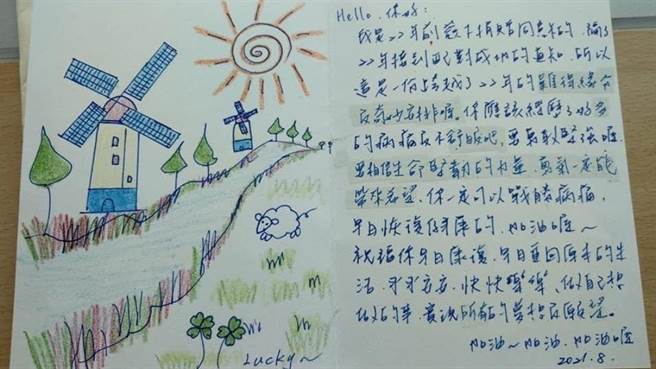 Hello, 你好:
我是22年前簽下捐贈同意書的,隔了
22年接到配對成功的通知,所以
這是一份跨越了22年的難得緣分
與奇妙安排喔。你應該經歷了好多
的病痛與不舒服吧,要勇敢堅強喔
要相信生命 的力量,勇氣一定能
帶來希望,你一定可以戰勝病痛,
早日恢復健康的,加油喔~
祝福你早日康復,早日重回原本的生
活,平平安安、快快樂樂、做自己想
做的事,實現所有的夢想與願望。
加油~加油,加油喔
2021.8.
Lucky~